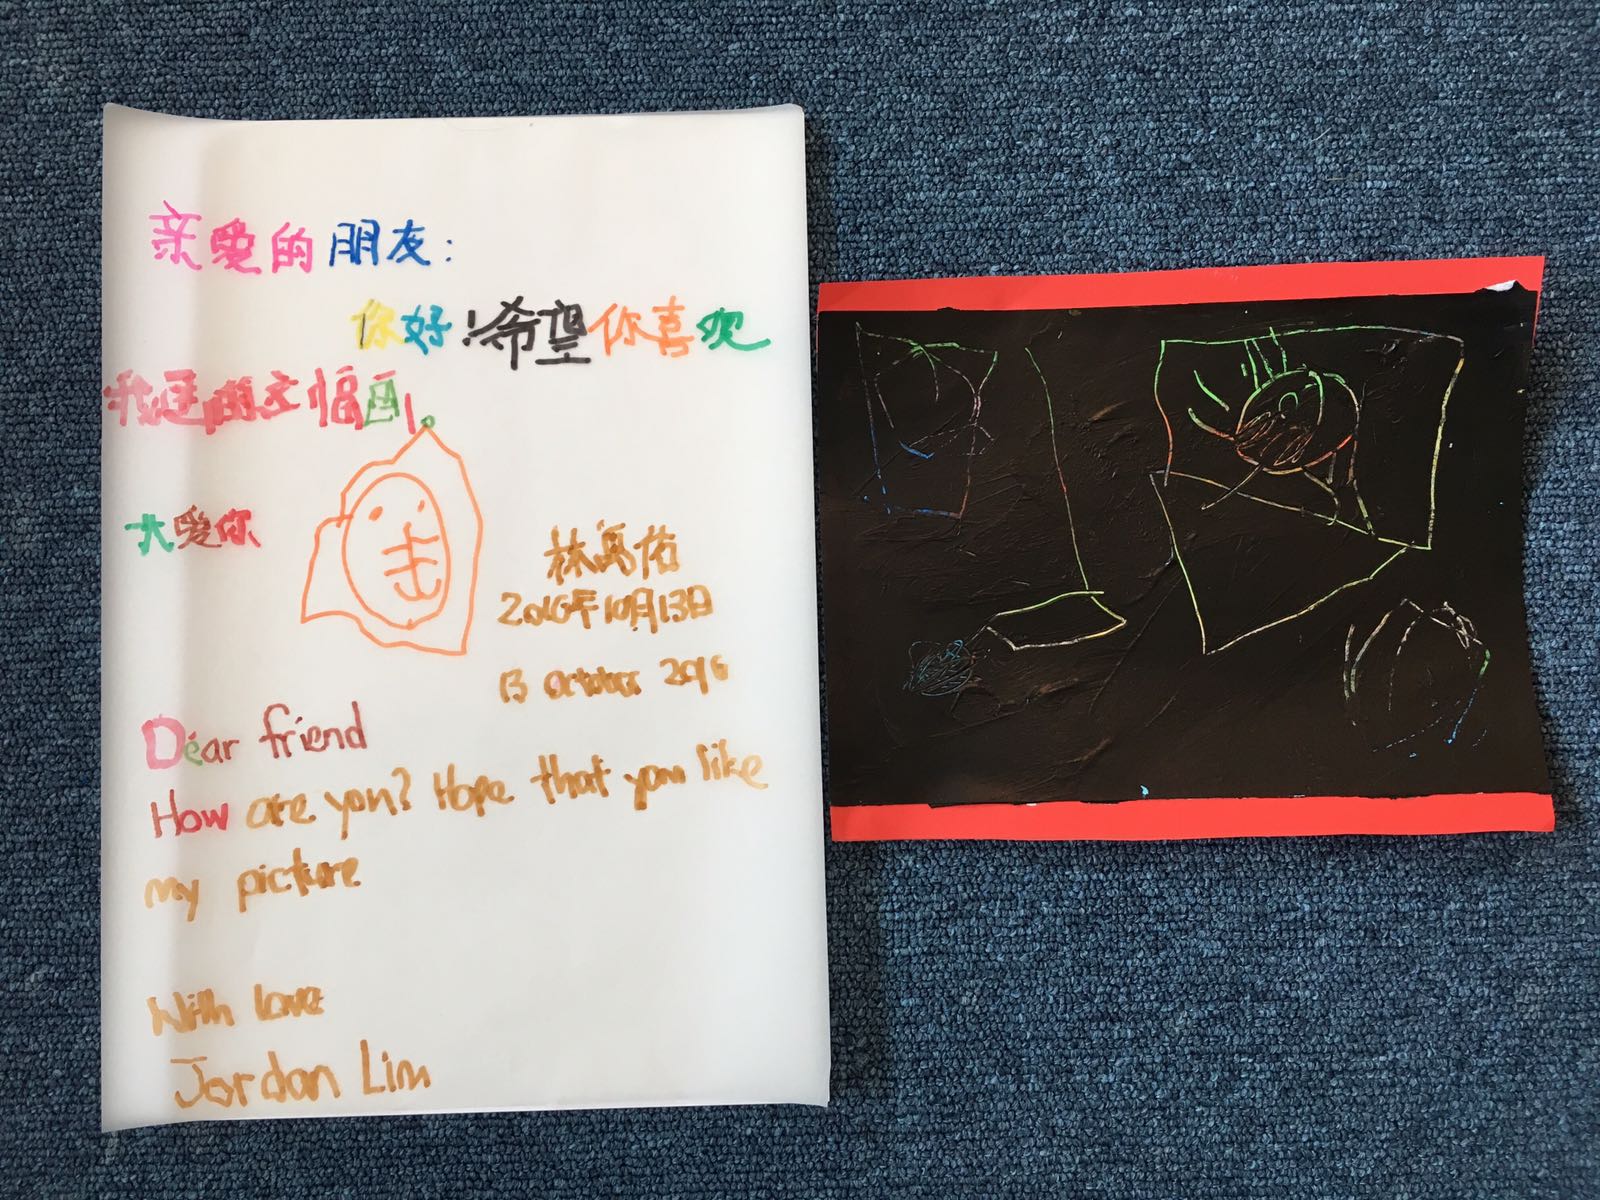 亲爱的朋友:
你好!希望你喜欢
我送的这幅画。
爱你
2016年10月13日
13 October 2016
Dear friend
How are you? Hope that you like
my picture
With love
Jordan Lim